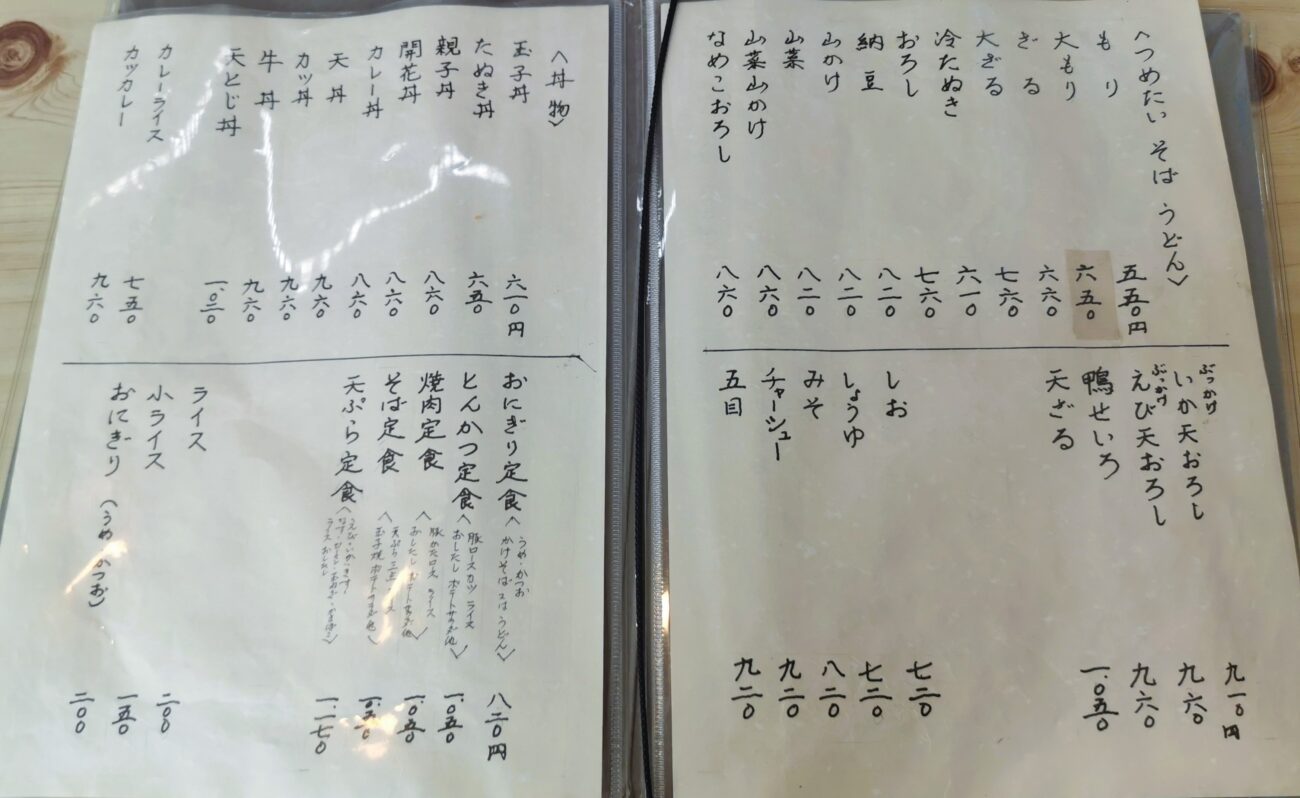 〈つめたい そば うどん〉
もり 五五〇円
大もり 六五〇
ざる 六六〇
大ざる 七六〇
冷たぬき 六一〇
おろし 七六〇
納豆 八二〇
山かけ 八二〇
山菜 八二〇
山菜山かけ 八六〇
なめこおろし 八六〇
ぶっかけ いか天おろし 九一〇円
ぶっかけ えび天おろし 九六〇
鴨せいろ 九六〇
天ざる 一、〇五〇
しお 七二〇
しょうゆ 七二〇
みそ 八二〇
チャーシュー 九二〇
五目 九二〇
〈丼物〉
玉子丼 六一〇円
たぬき丼 六五〇
親子丼 八六〇
開花丼 八六〇
カレー丼 八六〇
天丼 九六〇
カツ丼 九六〇
牛丼 九六〇
天とじ丼 一、〇二〇
カレーライス 七五〇
カツカレー 九六〇
おにぎり定食〈うめ・かつお かけそば 又は うどん〉 八二〇円
とんかつ定食〈豚ロースカツ ライス おしたし ポテトサラダ他〉 一、〇五〇
焼肉定食〈豚かたロース ライス おしたし ポテトサラダ他〉 一、〇五〇
そば定食〈天ぷら 玉子焼 ポテトサラダ他〉
天ぷら定食〈えび・いか ライス おしたし〉 一、一七〇
ライス 二〇〇
小ライス 一五〇
おにぎり（うめ かつお） 二〇〇